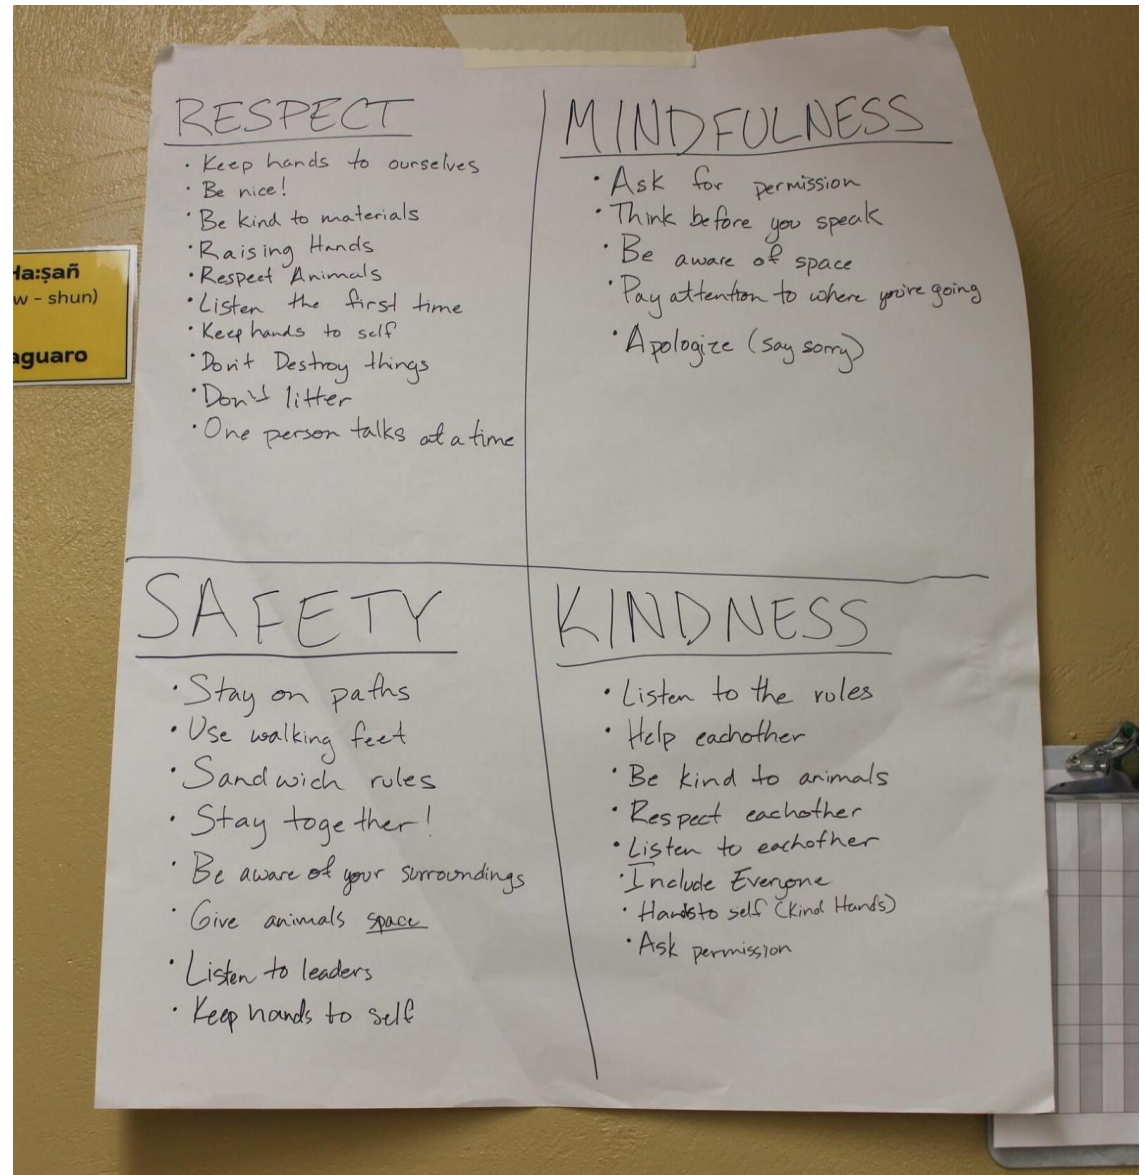 RESPECT
• Keep hands to ourselves
• Be nice!
• Be kind to materials
• Raising Hands
• Respect Animals
• Listen the first time
• Keep hands to self
• Don't Destroy things
• Don't litter
• One person talks at a time
MINDFULNESS
• Ask for permission
• Think before you speak
• Be aware of space
• Pay attention to where you're going
• Apologize (say sorry)
SAFETY
• Stay on paths
• Use walking feet
• Sandwich rules
• Stay together!
• Be aware of your surroundings
• Give animals space
• Listen to leaders
• Keep hands to self
KINDNESS
• Listen to the rules
• Help eachother
• Be kind to animals
• Respect eachother
• Listen to eachother
• Include Everyone
• Hands to self (Kind Hands)
• Ask permission
Ha:ṣañ
w - shun)
aguaro